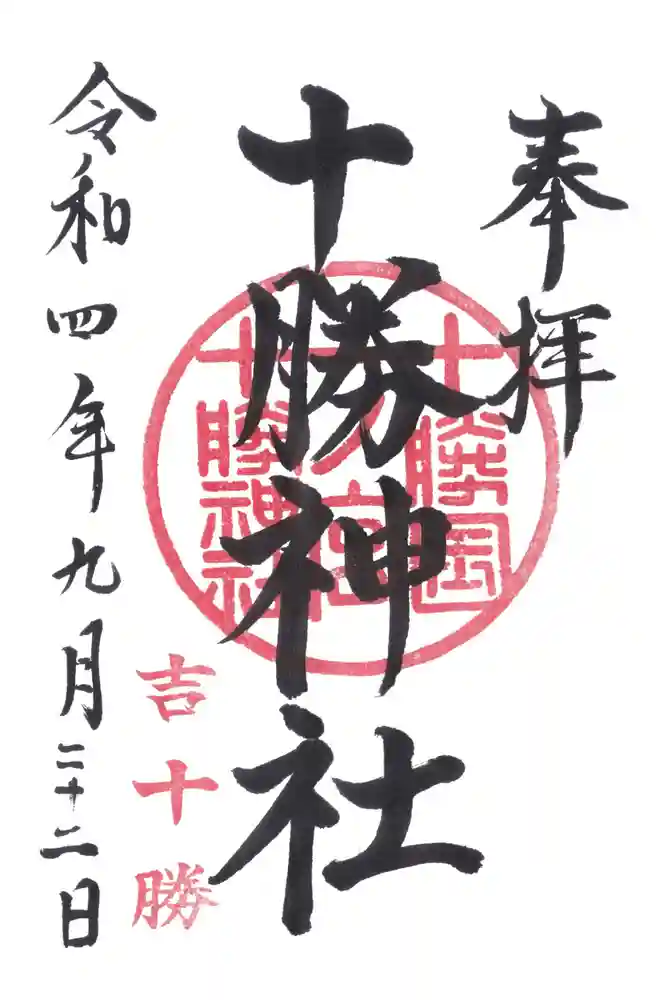 奉拝
十勝神社
十勝国
一ノ宮
十勝神社
吉十勝
令和四年九月二十二日